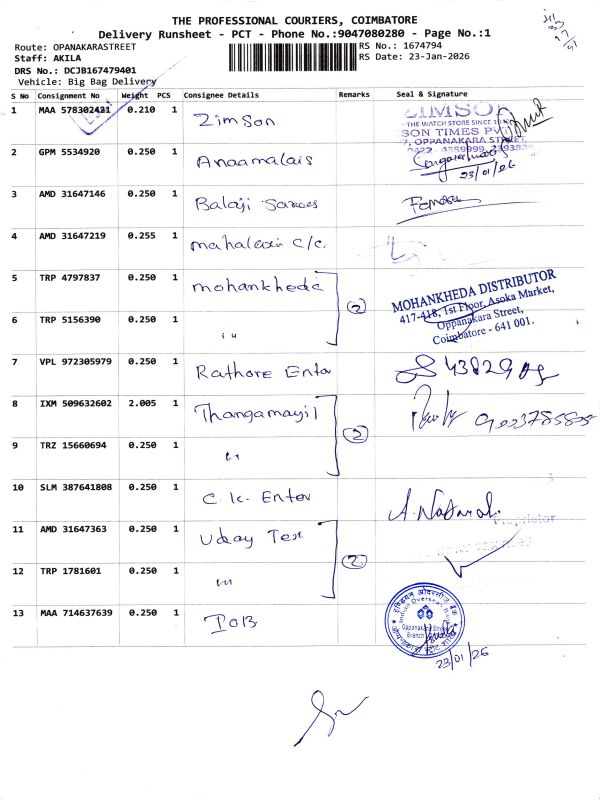 THE PROFESSIONAL COURIERS, COIMBATORE
Delivery Runsheet - PCT - Phone No.:9047080280 - Page No.:1
Route: OPANAKARASTREET
RS No.: 1674794
Staff: AKILA
RS Date: 23-Jan-2026
DRS No.: DCJB167479401
Vehicle: Big Bag Delivery
S No Consignment No Weight PCS Consignee Details Remarks Seal & Signature
1 MAA 578302431 0.210 1 Zimson
ZIMSON
THE WATCH STORE SINCE
SON TIMES
OPPANAKARA STREET
2 GPM 5534920 0.250 1 Anaamalais
23/01/26
3 AMD 31647146 0.250 1 Balaji Sarees
4 AMD 31647219 0.255 1 mahalaxmi c/c.
5 TRP 4797837 0.250 1 mohankheda
2
MOHANKHEDA DISTRIBUTOR
417-418, 1st Floor, Asoka Market,
Oppanakara Street,
Coimbatore - 641 001.
6 TRP 5156390 0.250 1 "
7 VPL 972305979 0.250 1 Rathore Enter
8 IXM 509632602 2.005 1 Thangamayil
2
9 TRZ 15660694 0.250 1 "
10 SLM 387641808 0.250 1 C.K. Enter
Proprietor
11 AMD 31647363 0.250 1 Uday Tex
2
12 TRP 1781601 0.250 1 "
13 MAA 714637639 0.250 1 IOB
इण्डियन ओवरसीज़ बैंक
Indian Overseas Bank
Oppanakara Street
Branch
23/01/26